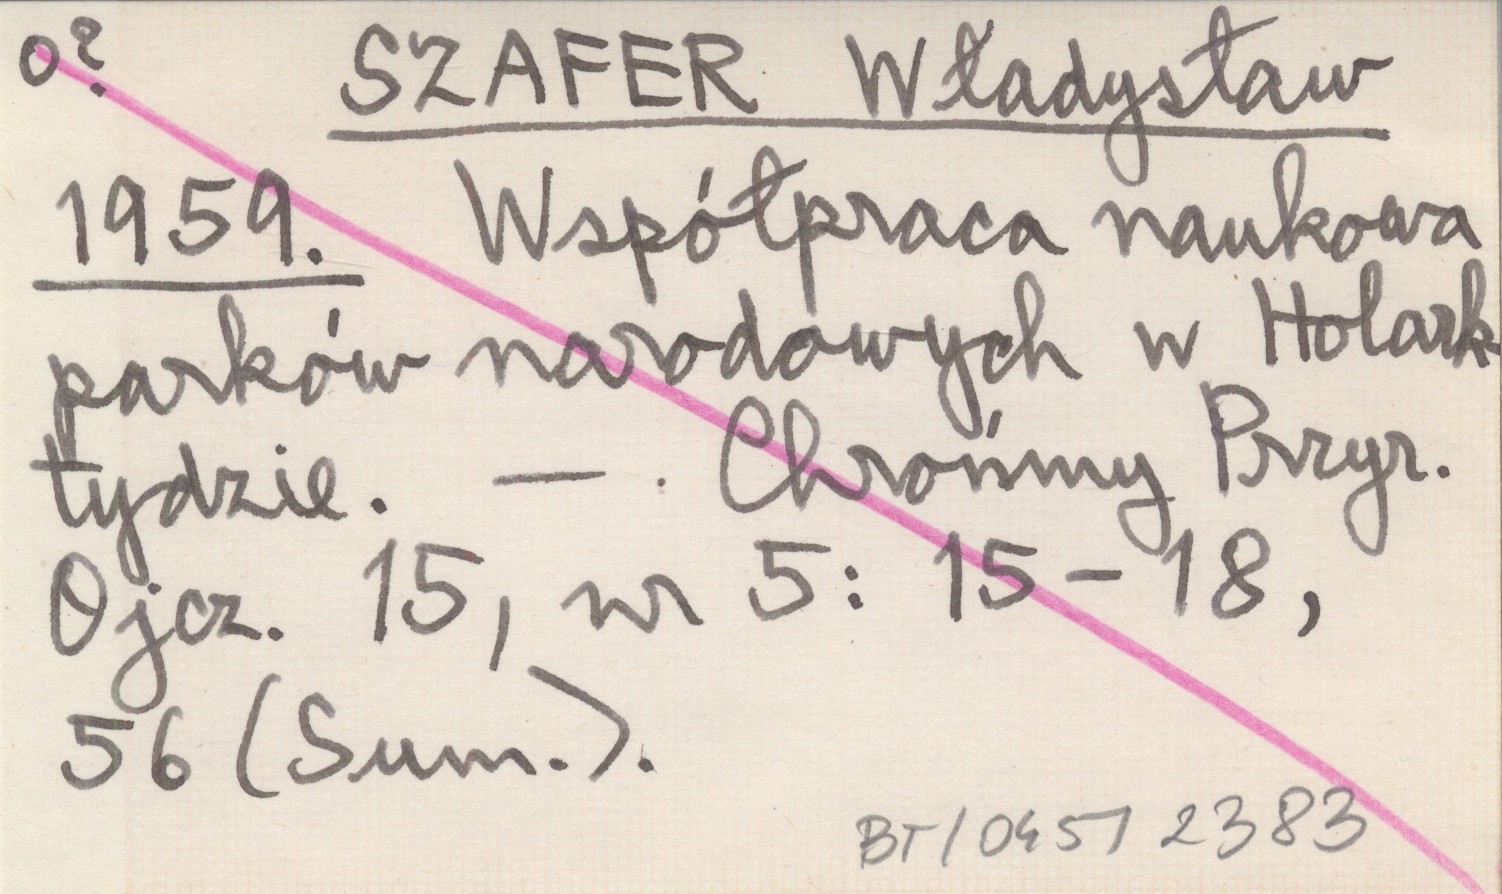 o? SZAFER Władysław
1959. Współpraca naukowa
parków narodowych w Holark
tydzie. — . Chrońmy Przyr.
Ojcz. 15, nr 5: 15-18,
56 (Sum.).
BT/0457 2383